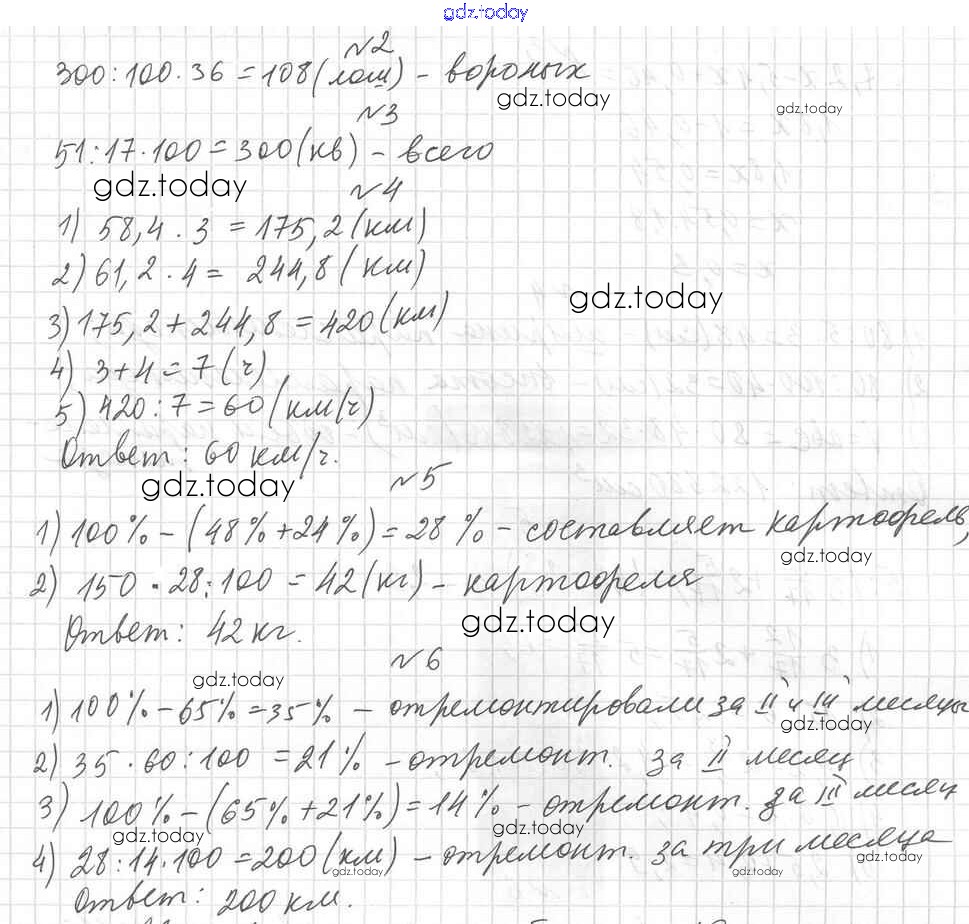 gdz.today
№2
300:100·36=108(лош) - вороных
gdz.today
gdz.today
№3
51:17·100=300(кв) - всего
gdz.today
№4
1) 58,4·3=175,2(км)
2) 61,2·4= 244,8(км)
gdz.today
3) 175,2+244,8=420(км)
4) 3+4=7(ч)
5) 420:7=60(км/ч)
Ответ: 60 км/ч.
gdz.today
№5
1) 100%-(48%+24%)=28% - составляет картофель,
gdz.today
2) 150·28:100=42(кг) - картофеля
Ответ: 42 кг.
gdz.today
№6
gdz.today
1) 100%-65%=35% - отремонтировали за II и III месяцы
gdz.today
2) 35·60:100=21% - отремонт. за II месяц
3) 100%-(65%+21%)=14% - отремонт. за III месяц
gdz.today
gdz.today
4) 28:14·100=200(км) - отремонт. за три месяца
gdz.today
gdz.today
gdz.today
Ответ: 200 км.